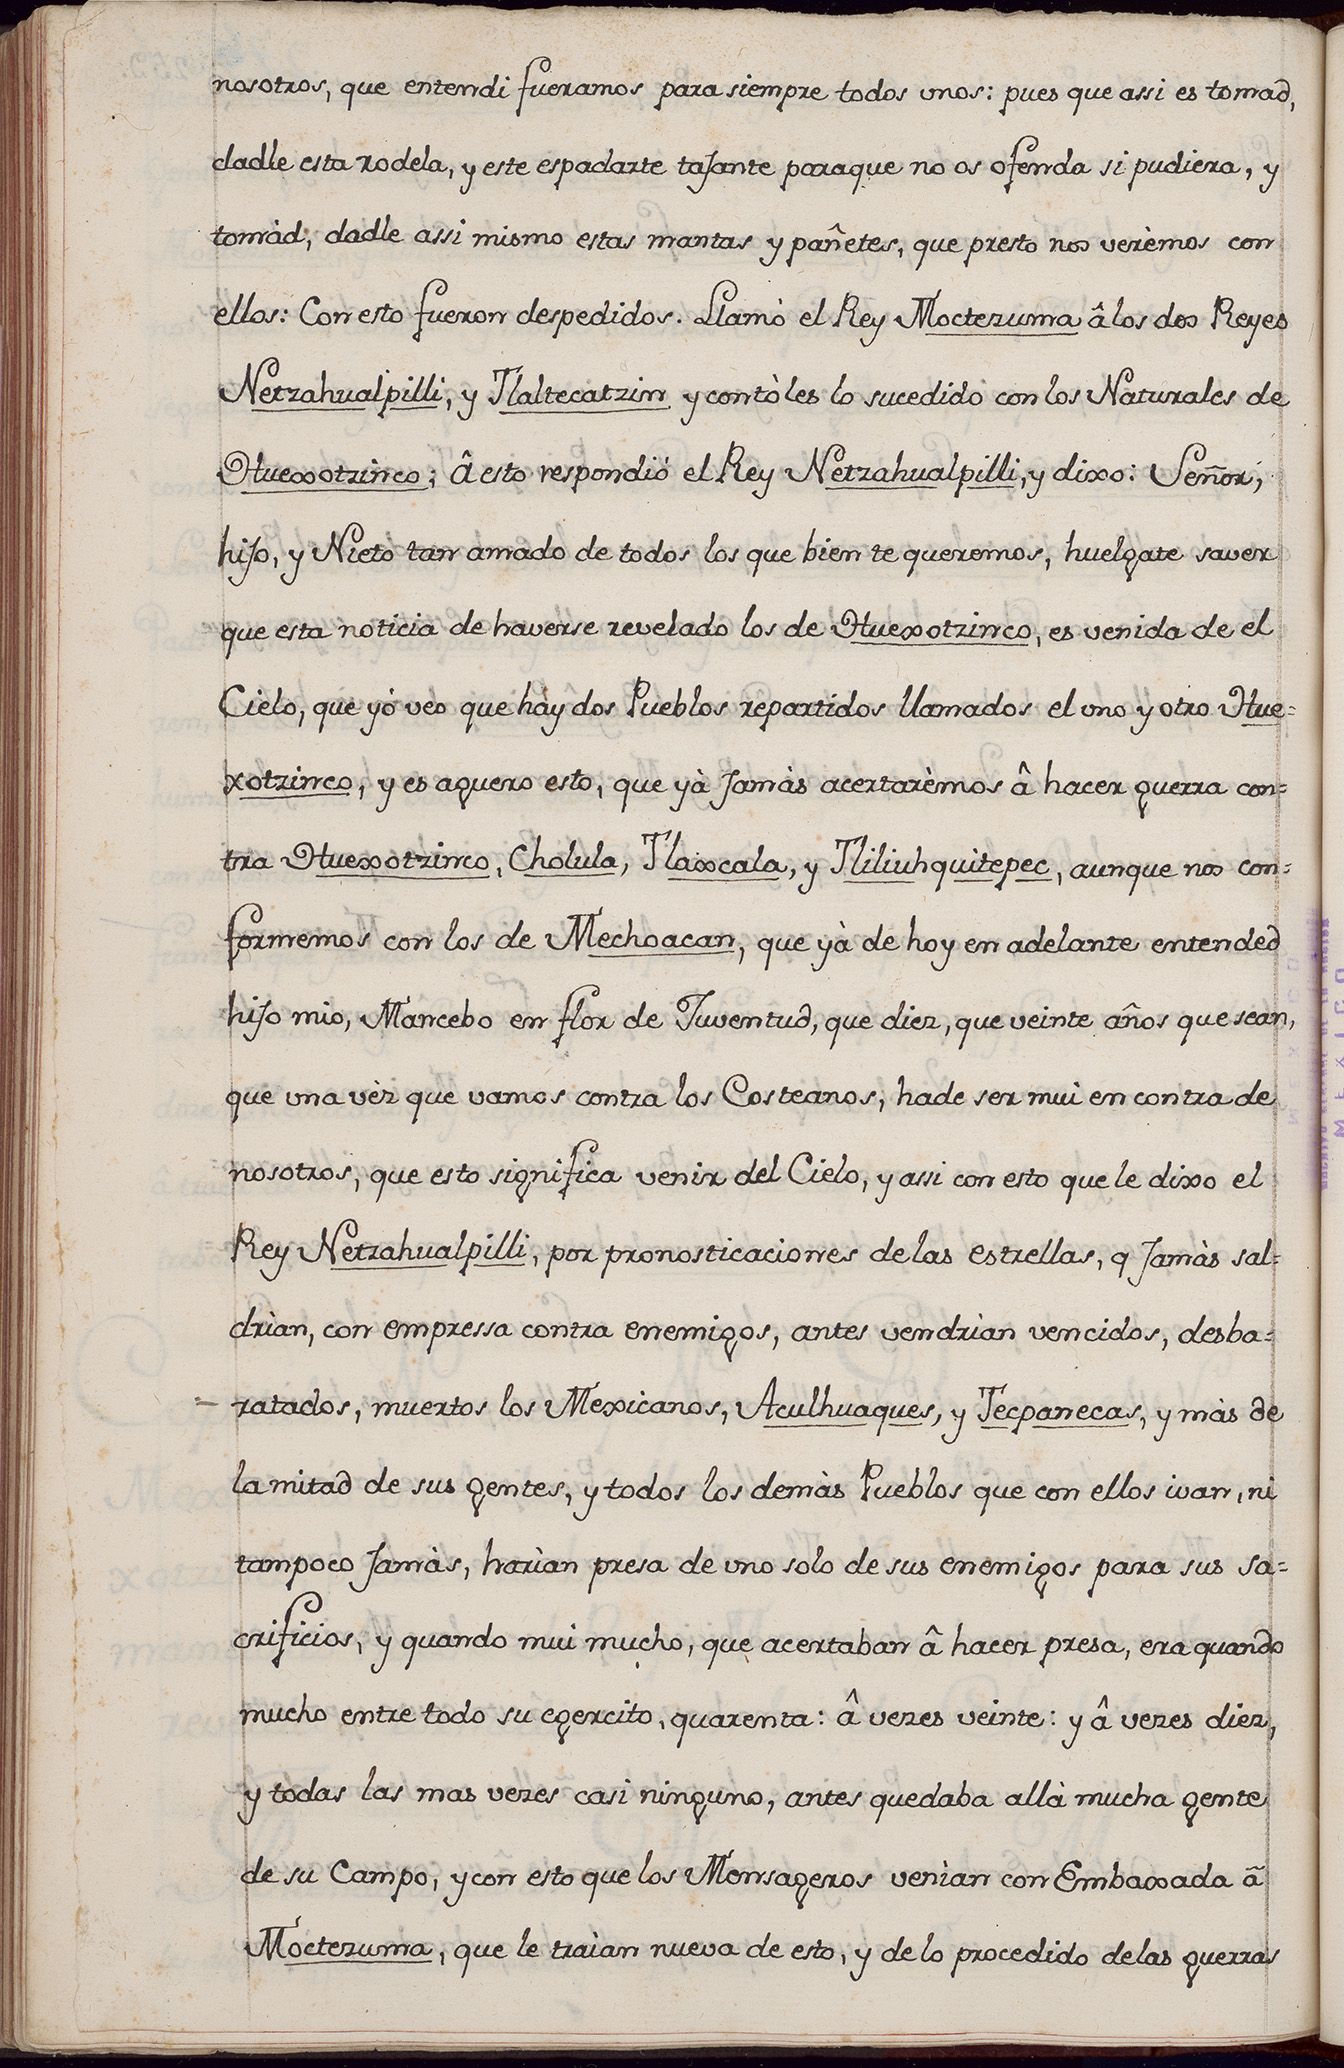 nosotros, que entendi fueramos para siempre todos unos: pues que assi es tomad,
dadle esta rodela, y este espadarte taJante paraque no os ofenda si pudiera, y
tomàd, dadle assi mismo estas mantas y pañetes, que presto nos verèmos con
ellos: Con esto fueron despedidos. Llamò el Rey Moctezuma â los dos Reyes
Netzahualpilli, y Tlaltecatzin y contòles lo sucedido con los Naturales de
Huexotzinco; Â esto respondió el Rey Netzahualpilli, y dixo: Señor,
hiJo, y Nieto tan amado de todos los que bien te queremos, huelgate saver
que esta noticia de haverse revelado los de Huexotzinco, es venida de el
Cielo, que yó veo que háy dos Pueblos repartidos llamados el uno y otro Hue=
xotzinco, y es aguero esto, que yà Jamàs acertarèmos â hacer guerra con=
tra Huexotzinco, Cholula, Tlaxcala, y Tliliuhquitepec, aunque nos con=
formemos con los de Mechoacan, que yà de hoy en adelante entended
hiJo mio, Mancebo en flor de Juventud, que diez, que veinte años que sean,
que una vèz que vamos contra los Costeanos, hade ser mui en contra de
nosotros, que esto significa venir del Cielo, y assi con esto que le dixo el
Rey Netzahualpilli, por pronosticaciones delas estrellas, q Jamàs sal=
drìan, con empressa contra enemigos, antes vendrian vencidos, desba=
ratados, muertos los Mexicanos, Aculhuaques, y Tecpanecas, y màs de
la mitad de sus gentes, y todos los demàs Pueblos que con ellos ivan, ni
tampoco Jamàs, harìan presa de uno solo de sus enemigos para sus sa=
crificios, y quando mui mucho, que acertaban â hacer presa, era quando
mucho entre todo su egercito, quarenta: â vezes veinte: y â vezes diez,
y todas las mas vezes casi ninguno, antes quedaba allà mucha gente
de su Campo, y con esto que los Mensageros venìan con Embaxada ã
Moctezuma, que le traìan nueva de esto, y de lo procedido delas guerras